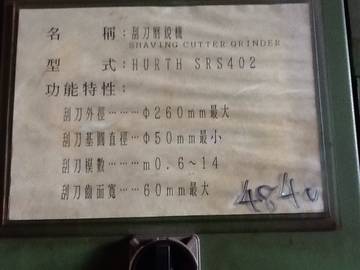 名 稱:刮刀磨銳機
SHAVING CUTTER GRINDER
型 式:HURTH SRS402
功能特性:
刮刀外徑……Φ260mm最大
刮刀基圓直徑…Φ50mm最小
刮刀模數……m0.6~14
刮刀齒面寬…60mm最大